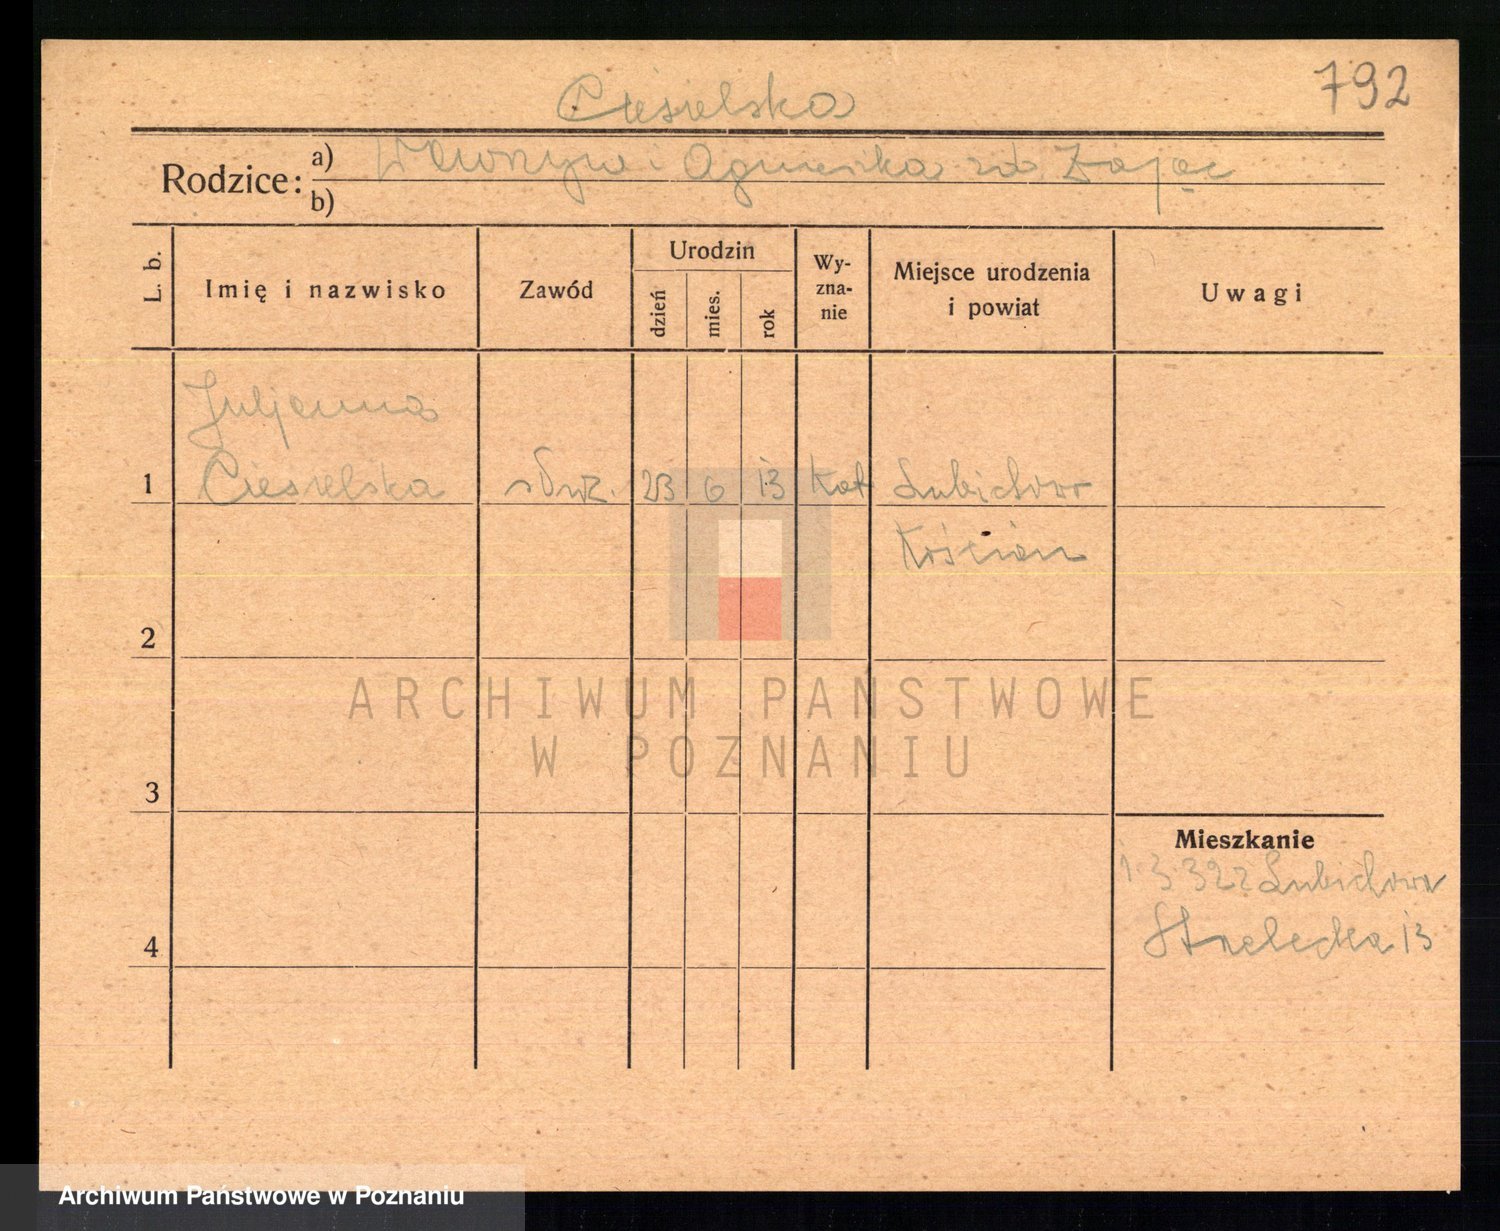 792
Ciesielska
Rodzice: a) Wawrzyn i Agnieszka zd Zając
b)
L. b.
Imię i nazwisko
Zawód
Urodzin
dzień
mies.
rok
Wy-
zna-
nie
Miejsce urodzenia
i powiat
Uwagi
Juljanna
1 Ciesielska służ. 23 6 13 Kat Lubiechowo
Kościan
2
ARCHIWUM PAŃSTWOWE
W POZNANIU
3
Mieszkanie
1 3 32 z Lubiechowa
Strzelecka 13
4
Archiwum Państwowe w Poznaniu